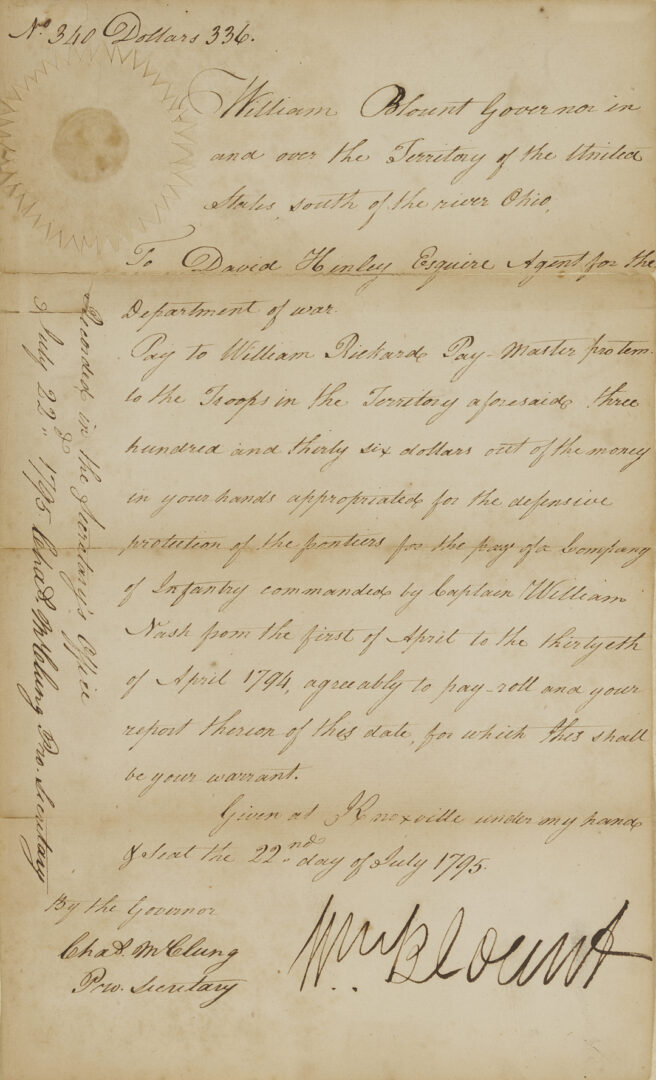 No 340 Dollars 336.
William Blount Governor in
and over the Territory of the United
States, south of the river Ohio,
To David Henley Esquire Agent for the
Department of war
Pay to William Rickard Pay-Master protem.
to the Troops in the Territory aforesaid three
hundred and thirty six dollars out of the money
in your hands appropriated for the defensive
protection of the frontiers for the pay of a Company
of Infantry commanded by Captain William
Nash from the first of April to the thirtyeth
of April 1794, agreably to pay-roll and your
report thereon of this date, for which this shall
be your warrant.
Given at Knoxville under my hand
& Seal the 22nd day of July 1795.
By the Governor
Chas. McClung
Pro. Secretary
Wm Blount
Recorded in the Secretary's Office
July 22d 1795 Chas. McClung Pro. Secretary